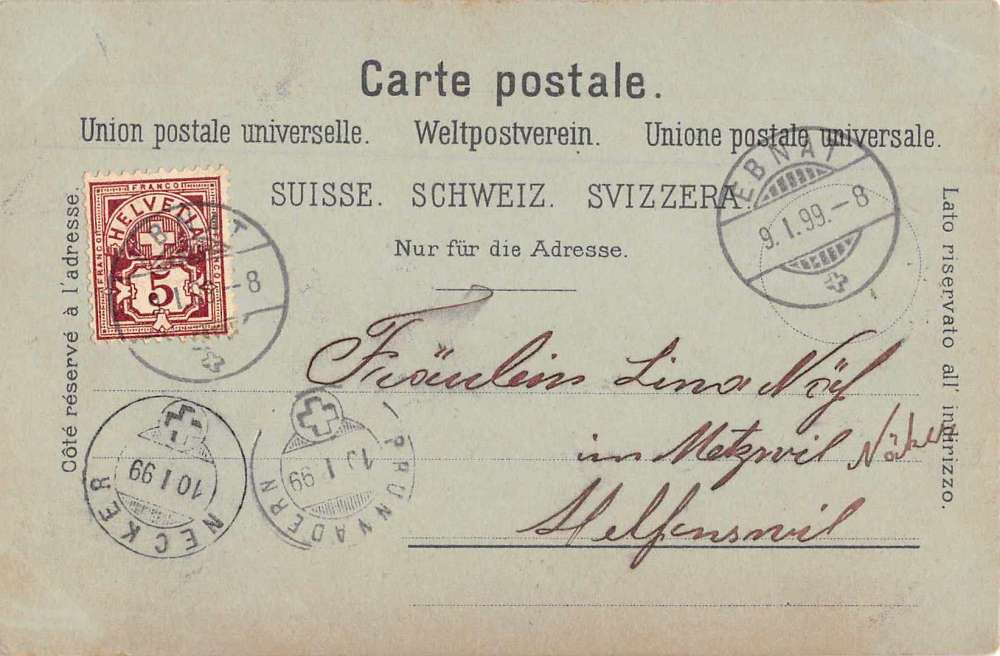 Carte postale.
Union postale universelle. Weltpostverein. Unione postale universale.
SUISSE. SCHWEIZ. SVIZZERA.
Nur für die Adresse.
Côté réservé à l'adresse.
Lato riservato all' indirizzo.
FRANCO
HELVETIA
FRANCO
FRANCO
5
EBNAT
9.I.99.-8
-8
Fräulein Lina Näf
im Metzwil
Helfenswil
NECKER
10 I 99
BRUNNADERN
10 I 99